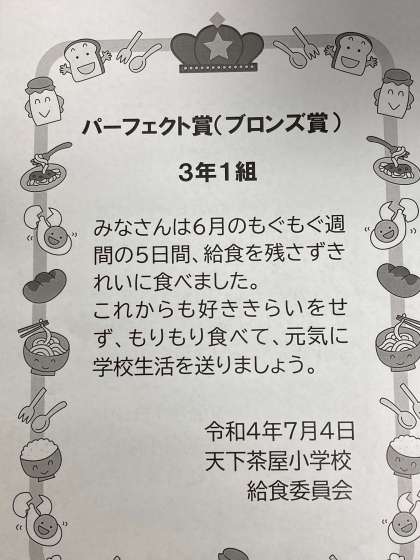 パーフェクト賞(ブロンズ賞)
3年1組
みなさんは6月のもぐもぐ週
間の5日間、給食を残さずき
れいに食べました。
これからも好ききらいをせ
ず、もりもり食べて、元気に
学校生活を送りましょう。
令和4年7月4日
天下茶屋小学校
給食委員会